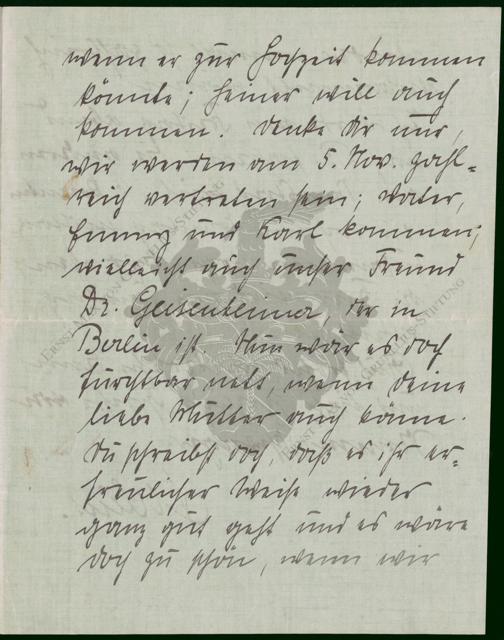 wenn er zur Hochzeit kommen
könnte; Heiner will auch
kommen. Denke Dir nur,
wir werden am 5. Nov. zahl-
reich vertreten sein; Vater,
Emmy und Karl kommen;
vielleicht auch unser Freund
Dr. Geisenheimer, der in
Berlin ist. Nun wär es doch
furchtbar nett, wenn Deine
liebe Mutter auch käme.
Du schreibst doch, daß es ihr er-
freulicher Weise wieder
ganz gut geht und es wäre
doch zu schön, wenn wir